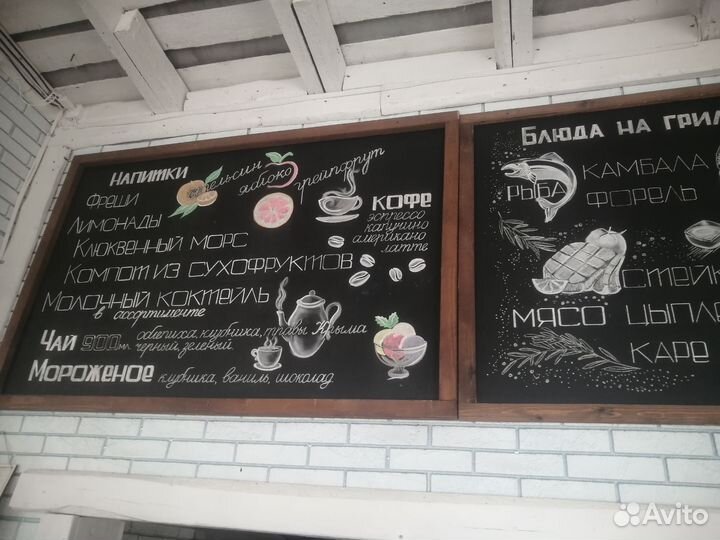 Напитки
Фреши апельсин яблоко грейпфрут
Лимонады
Клюквенный морс
Компот из сухофруктов
Молочный коктейль
в ассортименте
Чай 900мл. облепиха, клубника, травы Крыма
черный, зеленый
Мороженое клубника, ваниль, шоколад
Кофе
эспрессо
капучино
американо
латте
Блюда на
Рыба
камбала
форель
мясо
каре
Avito